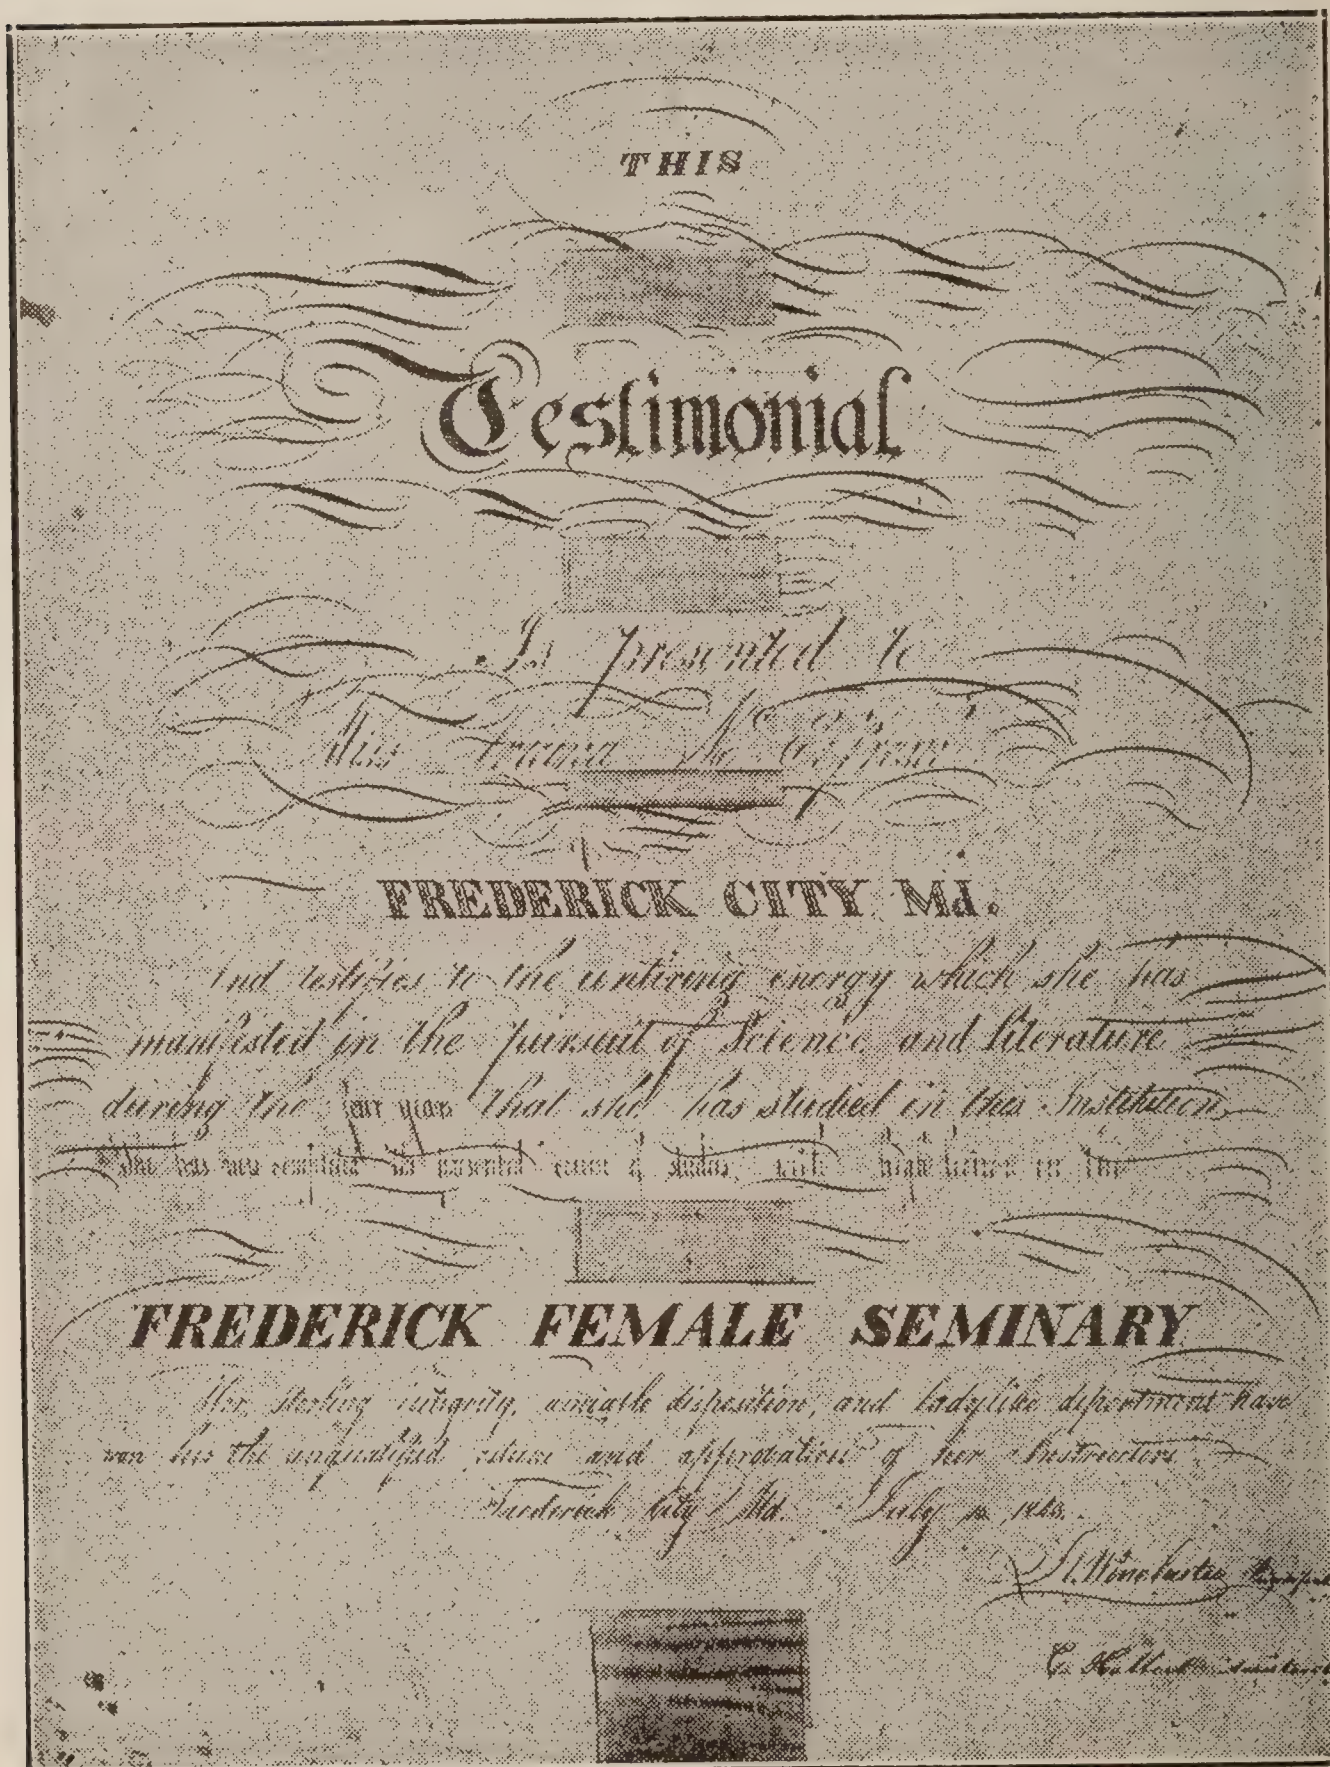 THIS
Testimonial
Is presented to
Miss
FREDERICK CITY Md.
And testifies to the untiring energy which she has
manifested in the pursuit of Science and literature
during the four years that she has studied in this Institution.
She has now completed the prescribed course of studies, with high honor in the
FREDERICK FEMALE SEMINARY
Her sterling integrity, amiable disposition, and ladylike deportment have
won her the unqualified esteem and approbation of her Instructors.
Frederick City Md. July
H. Winchester
C.